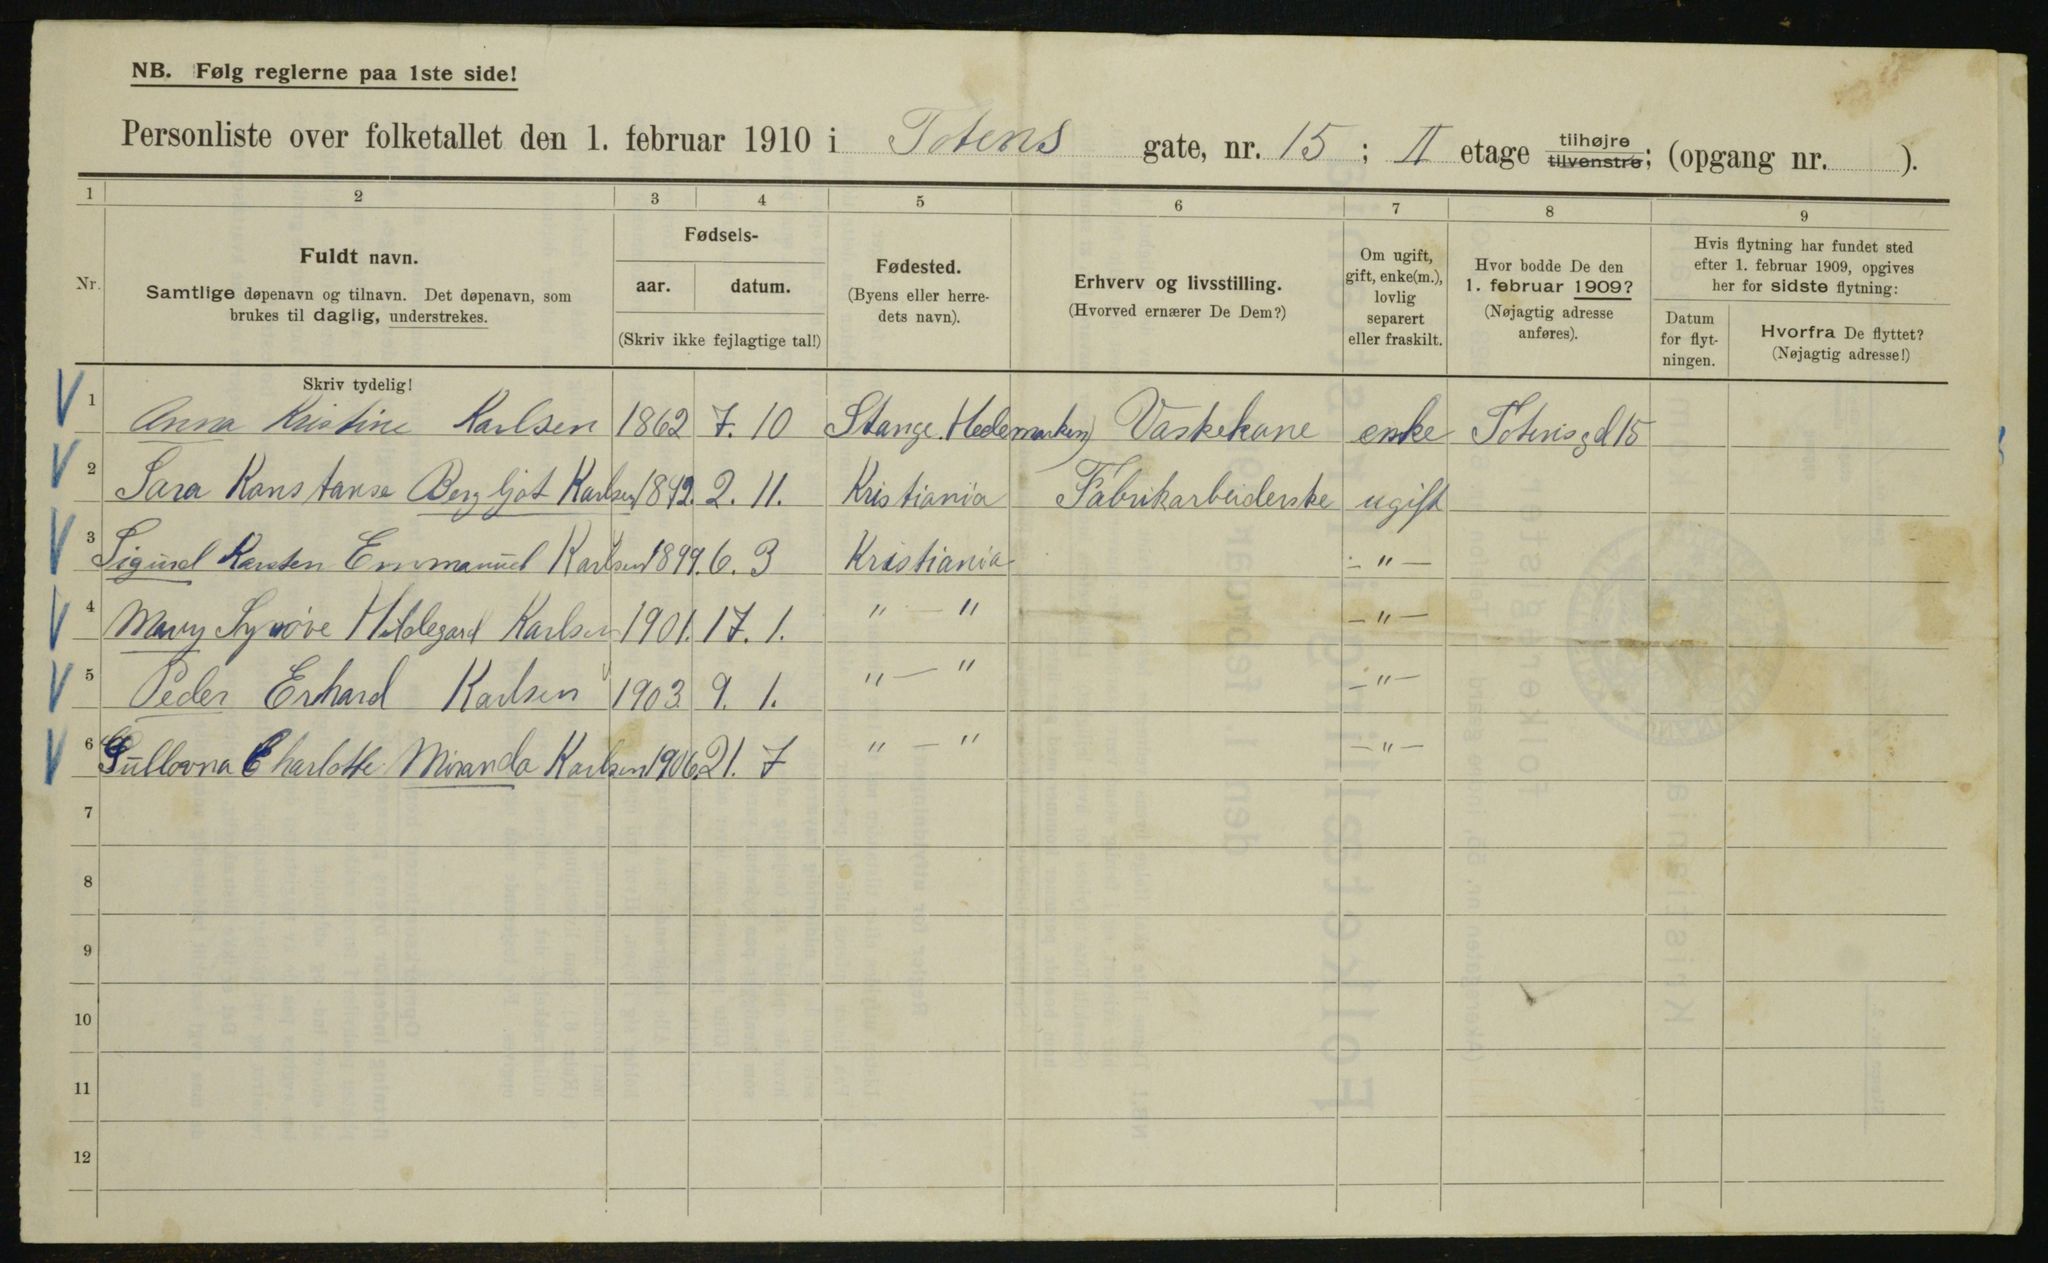 NB. Følg reglerne paa 1ste side!
Personliste over folketallet den 1. februar 1910 i Totens gate, nr. 15 ; II etage tilhøjre tilvenstre; (opgang nr. ).
1 2 3 4 5 6 7 8 9
Nr.
Fuldt navn.
Samtlige døpenavn og tilnavn. Det døpenavn, som
brukes til daglig, understrekes.
Fødsels-
aar. datum.
(Skriv ikke fejlagtige tal!)
Fødested.
(Byens eller herre-
dets navn).
Erhverv og livsstilling.
(Hvorved ernærer De Dem?)
Om ugift,
gift, enke(m.),
lovlig
separert
eller fraskilt.
Hvor bodde De den
1. februar 1909?
(Nøjagtig adresse
anføres).
Hvis flytning har fundet sted
efter 1. februar 1909, opgives
her for sidste flytning:
Datum
for flyt-
ningen.
Hvorfra De flyttet?
(Nøjagtig adresse!)
Skriv tydelig!
1 Anna Kristine Karlsen 1862 7. 10 Stange (Hedemarken) Vaskekone enke Totensgd 15
2 Sara Konstanse Bergljot Karlsen 2. 11. Kristiania Fabrikarbeiderske ugift
3 Sigurd Karsten Emmanuel Karlsen 1899. 6. 3 Kristiania – " –
4 Mary Synøve Hildegard Karlsen 1901. 17. 1. " – " – " –
5 Peder Erhard Karlsen 1903. 9. 1. " – " – " –
6 Gullovna Charlotte Miranda Karlsen 1906. 21. 7 " – " – " –
7
8
9
10
11
12